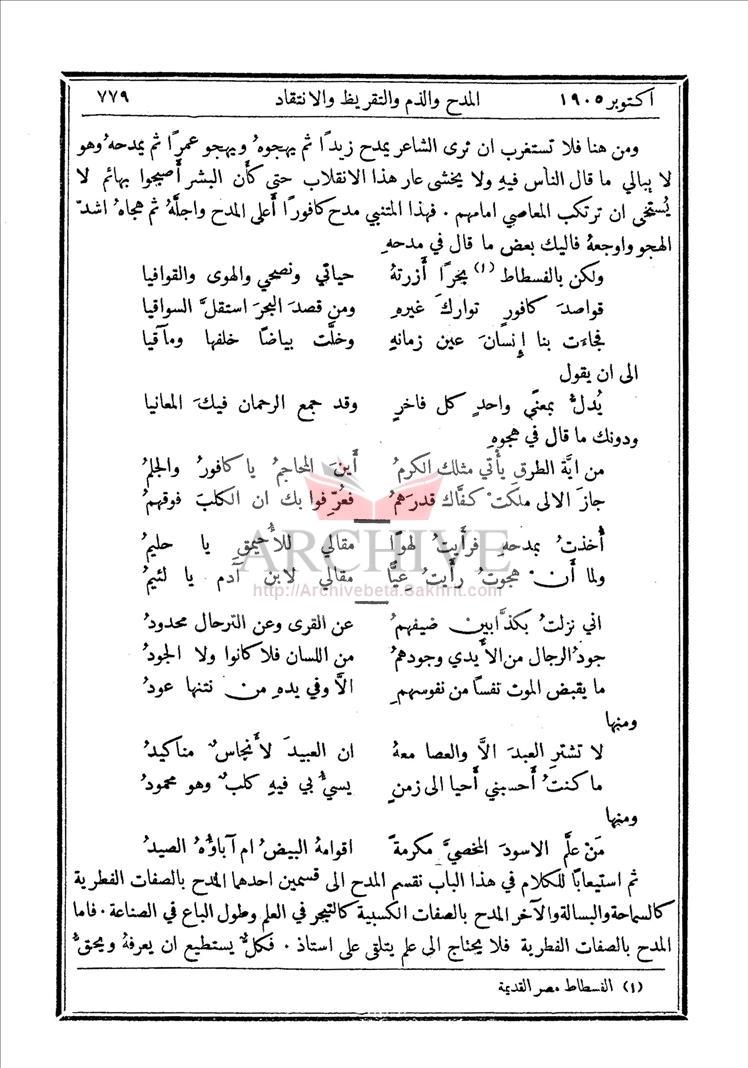 اكتوبر ١٩٠٥ المدح والذم والتقريظ والانتقاد ٧٧٩
ومن هنا فلا تستغرب ان ترى الشاعر يمدح زيدًا ثم يهجوهُ ويهجو عمرًا ثم يمدحهُ وهو
لا يبالي ما قال الناس فيهِ ولا يخشى عار هذا الانقلاب حتى كأن البشر أصبحوا بهائم لا
يُستحَى ان ترتكب المعاصي امامهم . فهذا المتنبي مدح كافورًا أعلى المدح واجلَّهُ ثم هجاهُ اشدّ
الهجو واوجعهُ فاليك بعض ما قال في مدحهِ
ولكن بالفسطاط (١) بحرًا أزرتهُ حياتي ونصحي والهوى والقوافيا
قواصدَ كافورٍ تواركَ غيرهِ ومن قصدَ البحرَ استقلَّ السواقيا
فجاءَت بنا إِنسانَ عين زمانهِ وخلَّت بياضًا خلفها ومآقيا
الى ان يقول
يُدلُّ بمعنًى واحدٍ كل فاخرٍ وقد جمع الرحمان فيكَ المعانيا
ودونك ما قال في هجوهِ
من ايَّة الطرق يأْتي مثلك الكرمُ أَينَ المحاجمُ يا كافورُ والجلمُ
جازَ الالى ملكَتْ كفَّاك قدرَهمُ فعُرِّفوا بك ان الكلبَ فوقهمُ
أُخذتُ بمدحهِ فرأَيتُ لهوًا مقالي للأُحيمق يا حليمُ
ولما أَنْ هجوتُ رأَيتُ عيًّا مقالي لابن آدم يا لئيمُ
اني نزلتُ بكذَّابين ضيفهمُ عن القرى وعن الترحال محدودُ
جودُ الرجال من الأَيدي وجودهمُ من اللسان فلا كانوا ولا الجودُ
ما يقبض الموت نفسًا من نفوسهمِ الاَّ وفي يده من نتنها عودُ
ومنها
لا تشترِ العبدَ الاَّ والعصا معهُ ان العبيدَ لأَنجاسٌ مناكيدُ
ما كنتُ أَحسبني أَحيا الى زمنٍ يسيُّ بي فيهِ كلبٌ وهو محمودُ
ومنها
مَنْ علَّم الاسودَ المخصيَّ مكرمةً اقوامهُ البيضُ ام آباؤُهُ الصيدُ
ثم استيعابًا للكلام في هذا الباب نقسم المدح الى قسمين احدهما المدح بالصفات الفطرية
كالسماحة والبسالة والآخر المدح بالصفات الكسبية كالتبحر في العلم وطول الباع في الصناعة . فاما
المدح بالصفات الفطرية فلا يحتاج الى علم يتلقى على استاذ . فكلٌّ يستطيع ان يعرفهُ ويحقُّ
(١) الفسطاط مصر القديمة
ARCHIVE
http://Archivebeta.Sakhrit.com